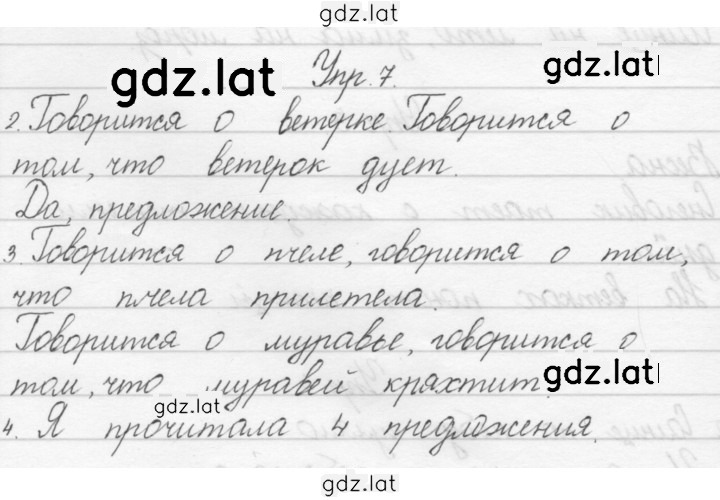 gdz.lat
Упр. 7.
gdz.lat
gdz.lat
2. Говорится о ветерке. Говорится о
том, что ветерок дует.
Да, предложение.
3. Говорится о пчеле, говорится о том,
что пчела прилетела.
Говорится о муравье, говорится о
том, что муравей кряхтит.
gdz.lat
gdz.lat
4. Я прочитала 4 предложения.
gdz.lat